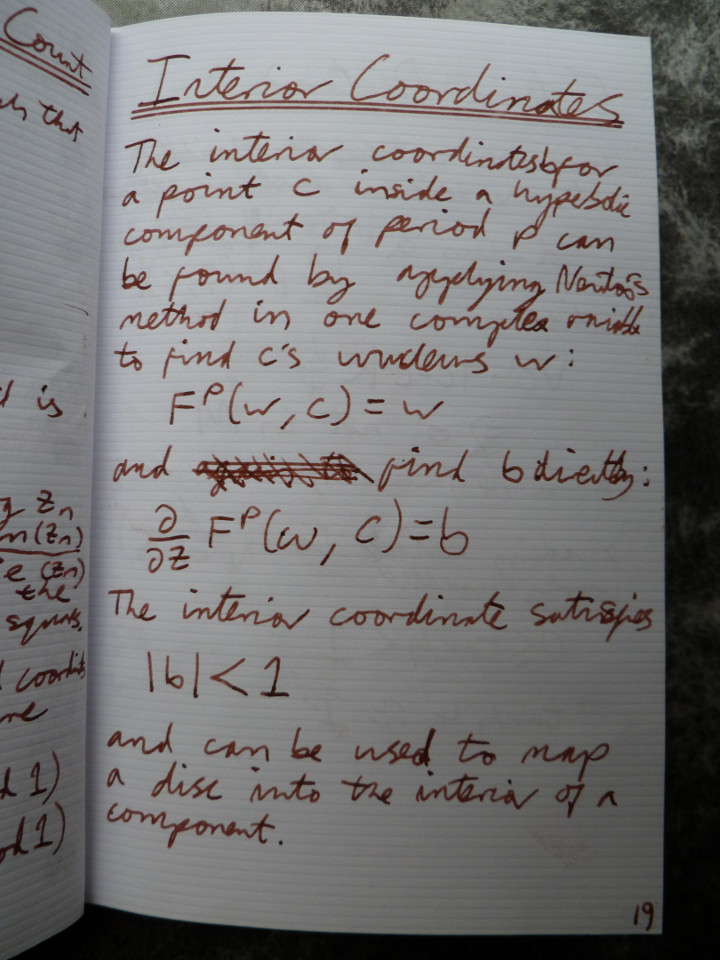 Count
that
is
zn
n(zn)
e(zn)
the
squares.
coordinates
1)
od 1)
Interior Coordinates
The interior coordinates b for
a point c inside a hyperbolic
component of period p can
be found by applying Newton's
method in one complex variable
to find c's wucleus w:
F^p(w, c) = w
and find b directly:
∂/∂z F^p(w, c) = b
The interior coordinate satisfies
|b| < 1
and can be used to map
a disc into the interior of a
component.
19